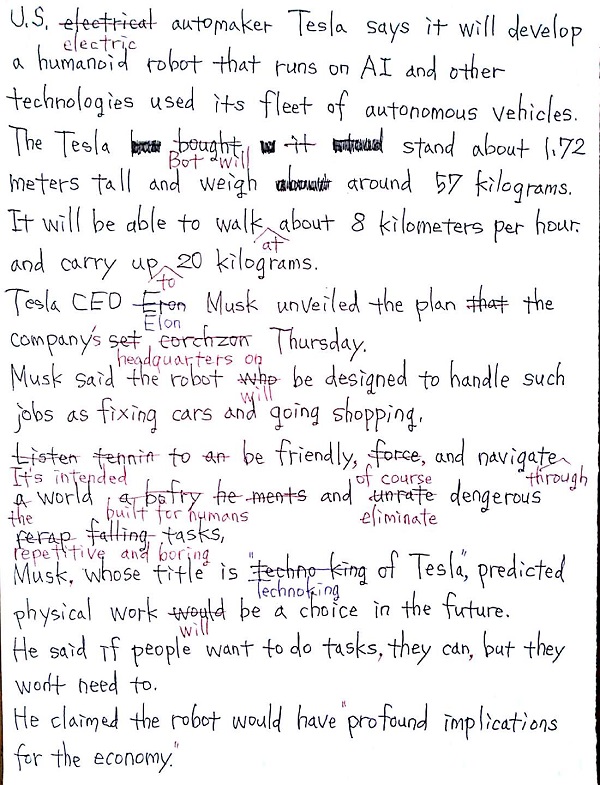 U.S. electrical automaker Tesla says it will develop
electric
a humanoid robot that runs on AI and other
technologies used its fleet of autonomous vehicles.
The Tesla bought it stand about 1.72
Bot will
meters tall and weigh around 57 kilograms.
It will be able to walk about 8 kilometers per hour.
at
and carry up 20 kilograms.
to
Tesla CEO Eron Musk unveiled the plan that the
Elon
company's set corchzon Thursday.
headquarters on
Musk said the robot who be designed to handle such
will
jobs as fixing cars and going shopping.
Listen tennin to an be friendly, force, and navigate
It's intended of course through
a world, a bofry he ments and unrate dengerous
the built for humans eliminate
rerap falling tasks,
repetitive and boring
Musk, whose title is "techno king of Tesla", predicted
Technoking
physical work would be a choice in the future.
will
He said if people want to do tasks, they can, but they
won't need to.
He claimed the robot would have "profound implications
for the economy."